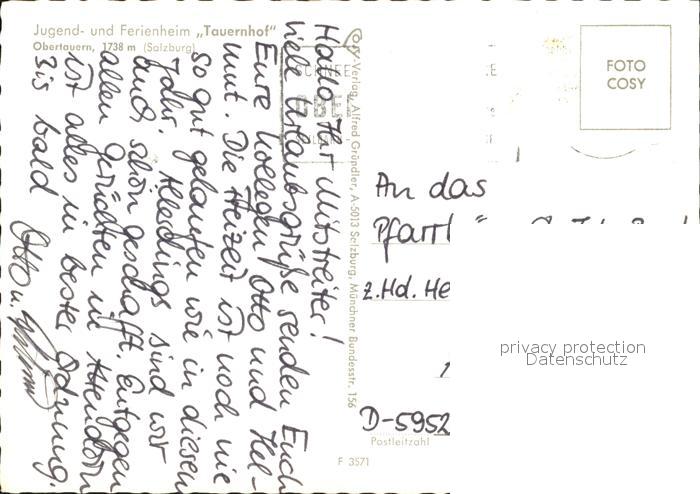 Jugend- und Ferienheim „Tauernhof“
Obertauern, 1738 m (Salzburg)
Hallo Ihr Mitstreiter!
Viele Urlaubsgrüße senden Euch
Eure Kollegen Otto und Hel-
mut. Die Heizeit ist noch nie
so gut gelaufen wie in diesem
Jahr. Allerdings sind wir
auch schön geschafft. Entgegen
allen Gerüchten in Attendorn
ist alles in bester Ordnung.
Bis bald Otto u.
Cosy-Verlag, Alfred Gründler, A-5013 Salzburg, Münchner Bundesstr. 156
FOTO
COSY
An das
Pfarr
z.Hd. He
privacy protection
Datenschutz
D-5952
Postleitzahl
F 3571